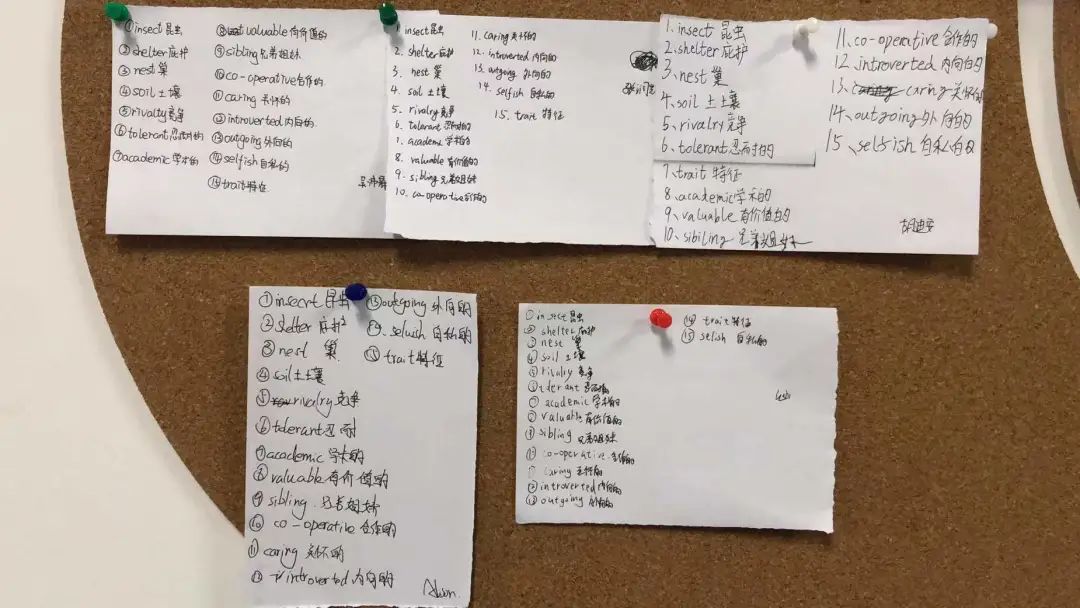 ①insect 昆虫
②shelter 庇护
③nest 巢
④soil 土壤
⑤rivalty竞争
⑥tolerant忍耐的
⑦academic 学术的
⑧valuable 有价值的
⑨sibling兄弟姐妹
⑩co-operative合作的
⑪caring 关怀的
⑫introverted内向的
⑬outgoing外向的
⑭selfish自私的
⑮trait特征
1. insect 昆虫
2. shelter庇护
3. nest 巢
4. soil 土壤
5. rivalry 竞争
6. tolerant 忍耐的
7. academic 学术的
8. valuable 有价值的
9. sibling 兄弟姐妹
10. co-operative合作的
11. caring 关怀的
12. introverted 内向的
13. outgong 外向的
14. selfish 自私的
15. trait 特征
1.insect 昆虫
2.shelter庇护
3、nest 巢
4、soil 土壤
5、rivalry 竞争
6、tolerant忍耐的
7、trait 特征
8、academic学术的
9、valuable 有价值的
10、sibiling 兄弟姐妹
11、co-operative合作的
12、introverted 内向的
13、caring关怀的
14、outgoing外向的
15、selfish自私的
胡迪安
①insecrt 昆虫
②shelter 庇护
③nest 巢
④soil土壤
⑤rivalry竞争
⑥tolerant忍耐
⑦academic 学术的
⑧valuable有价值的
⑨sibling.兄弟姐妹
⑩co-operative 合作的
⑪caring 关怀的
⑫introverted 内向的
⑬outgoing 外向的
⑭.seluish 自私的
⑮trait特征
①insect 昆虫
②shelter 庇护
③nest 巢
④soil 土壤
⑤rivalry 竞争
⑥tolerant 忍耐的
⑦academic 学术的
⑧valuable有价值的
⑨sibling 兄弟姐妹
⑩co-operative 合作的
⑪caring 关怀的
⑫introverted 内向的
⑬outgoing 外向的
⑭trait特征
⑮selish 自私的